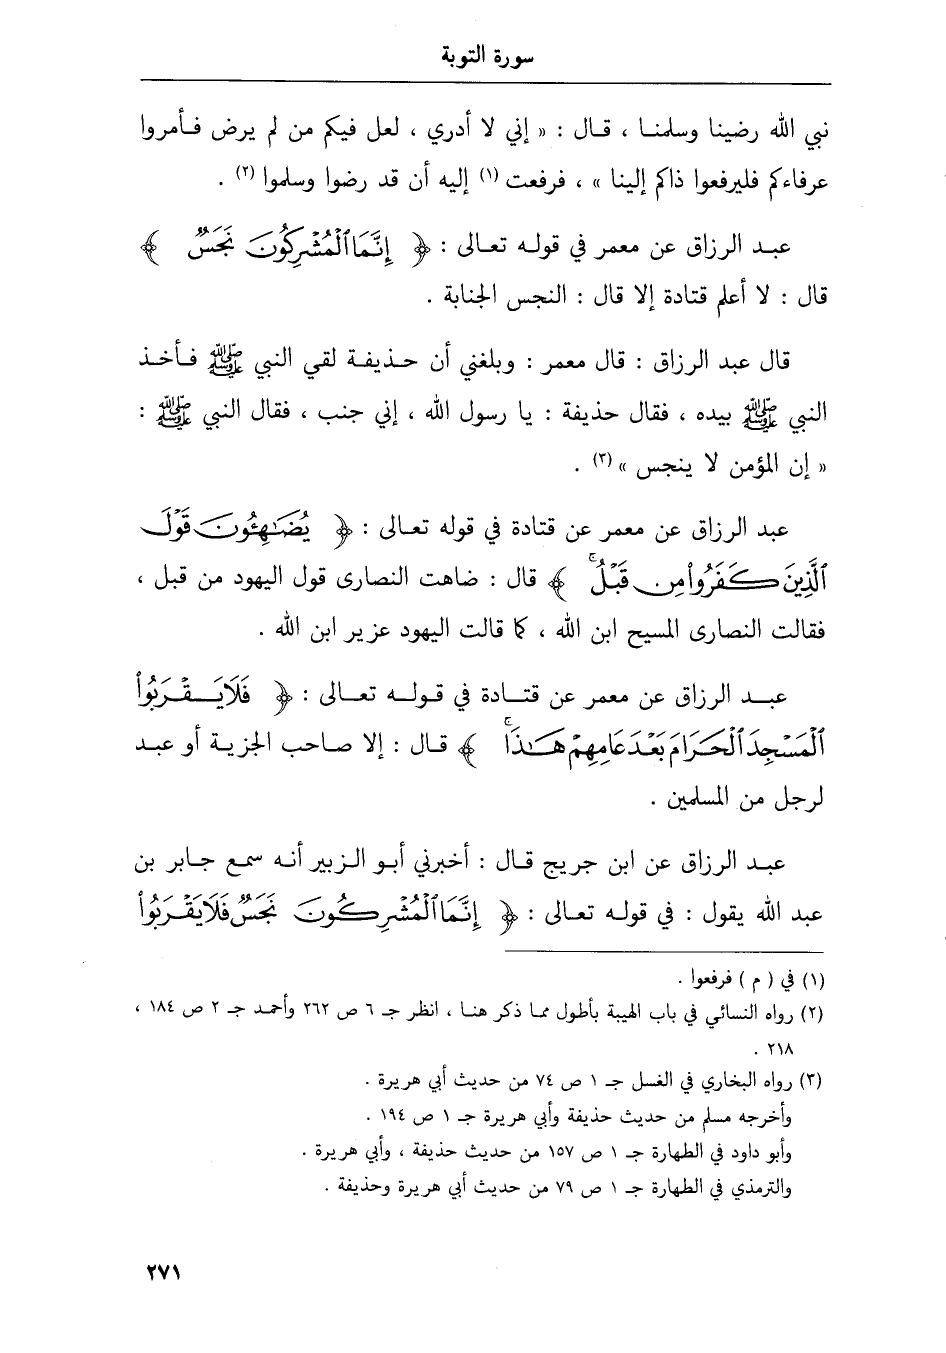 سورة التوبة
نبي الله رضينا وسلمنا ، قال : « إني لا أدري ، لعل فيكم من لم يرض فأمروا
عرفاءكم فليرفعوا ذاكم إلينا » ، فرفعت (١) إليه أن قد رضوا وسلموا (٢) .
عبد الرزاق عن معمر في قوله تعالى : ﴿ إِنَّمَا ٱلْمُشْرِكُونَ نَجَسٌ ﴾
قال : لا أعلم قتادة إلا قال : النجس الجنابة .
قال عبد الرزاق : قال معمر : وبلغني أن حذيفة لقي النبي ﷺ فأخذ
النبي ﷺ بيده ، فقال حذيفة : يا رسول الله ، إني جنب ، فقال النبي ﷺ :
« إن المؤمن لا ينجس » (٣) .
عبد الرزاق عن معمر عن قتادة في قوله تعالى : ﴿ يُضَـٰهِـُٔونَ قَوْلَ
ٱلَّذِينَ كَفَرُوا۟ مِن قَبْلُ ۚ ﴾ قال : ضاهت النصارى قول اليهود من قبل ،
فقالت النصارى المسيح ابن الله ، كما قالت اليهود عزير ابن الله .
عبد الرزاق عن معمر عن قتادة في قوله تعالى : ﴿ فَلَا يَقْرَبُوا۟
ٱلْمَسْجِدَ ٱلْحَرَامَ بَعْدَ عَامِهِمْ هَـٰذَا ۚ ﴾ قال : إلا صاحب الجزية أو عبد
لرجل من المسلمين .
عبد الرزاق عن ابن جريج قال : أخبرني أبو الزبير أنه سمع جابر بن
عبد الله يقول : في قوله تعالى : ﴿ إِنَّمَا ٱلْمُشْرِكُونَ نَجَسٌ فَلَا يَقْرَبُوا۟
(١) في ( م ) فرفعوا .
(٢) رواه النسائي في باب الهيبة بأطول مما ذكر هنا ، انظر جـ ٦ ص ٢٦٢ وأحمد جـ ٢ ص ١٨٤ ،
٢١٨ .
(٣) رواه البخاري في الغسل جـ ١ ص ٧٤ من حديث أبي هريرة .
وأخرجه مسلم من حديث حذيفة وأبي هريرة جـ ١ ص ١٩٤ .
وأبو داود في الطهارة جـ ١ ص ١٥٧ من حديث حذيفة ، وأبي هريرة .
والترمذي في الطهارة جـ ١ ص ٧٩ من حديث أبي هريرة وحذيفة .
٢٧١